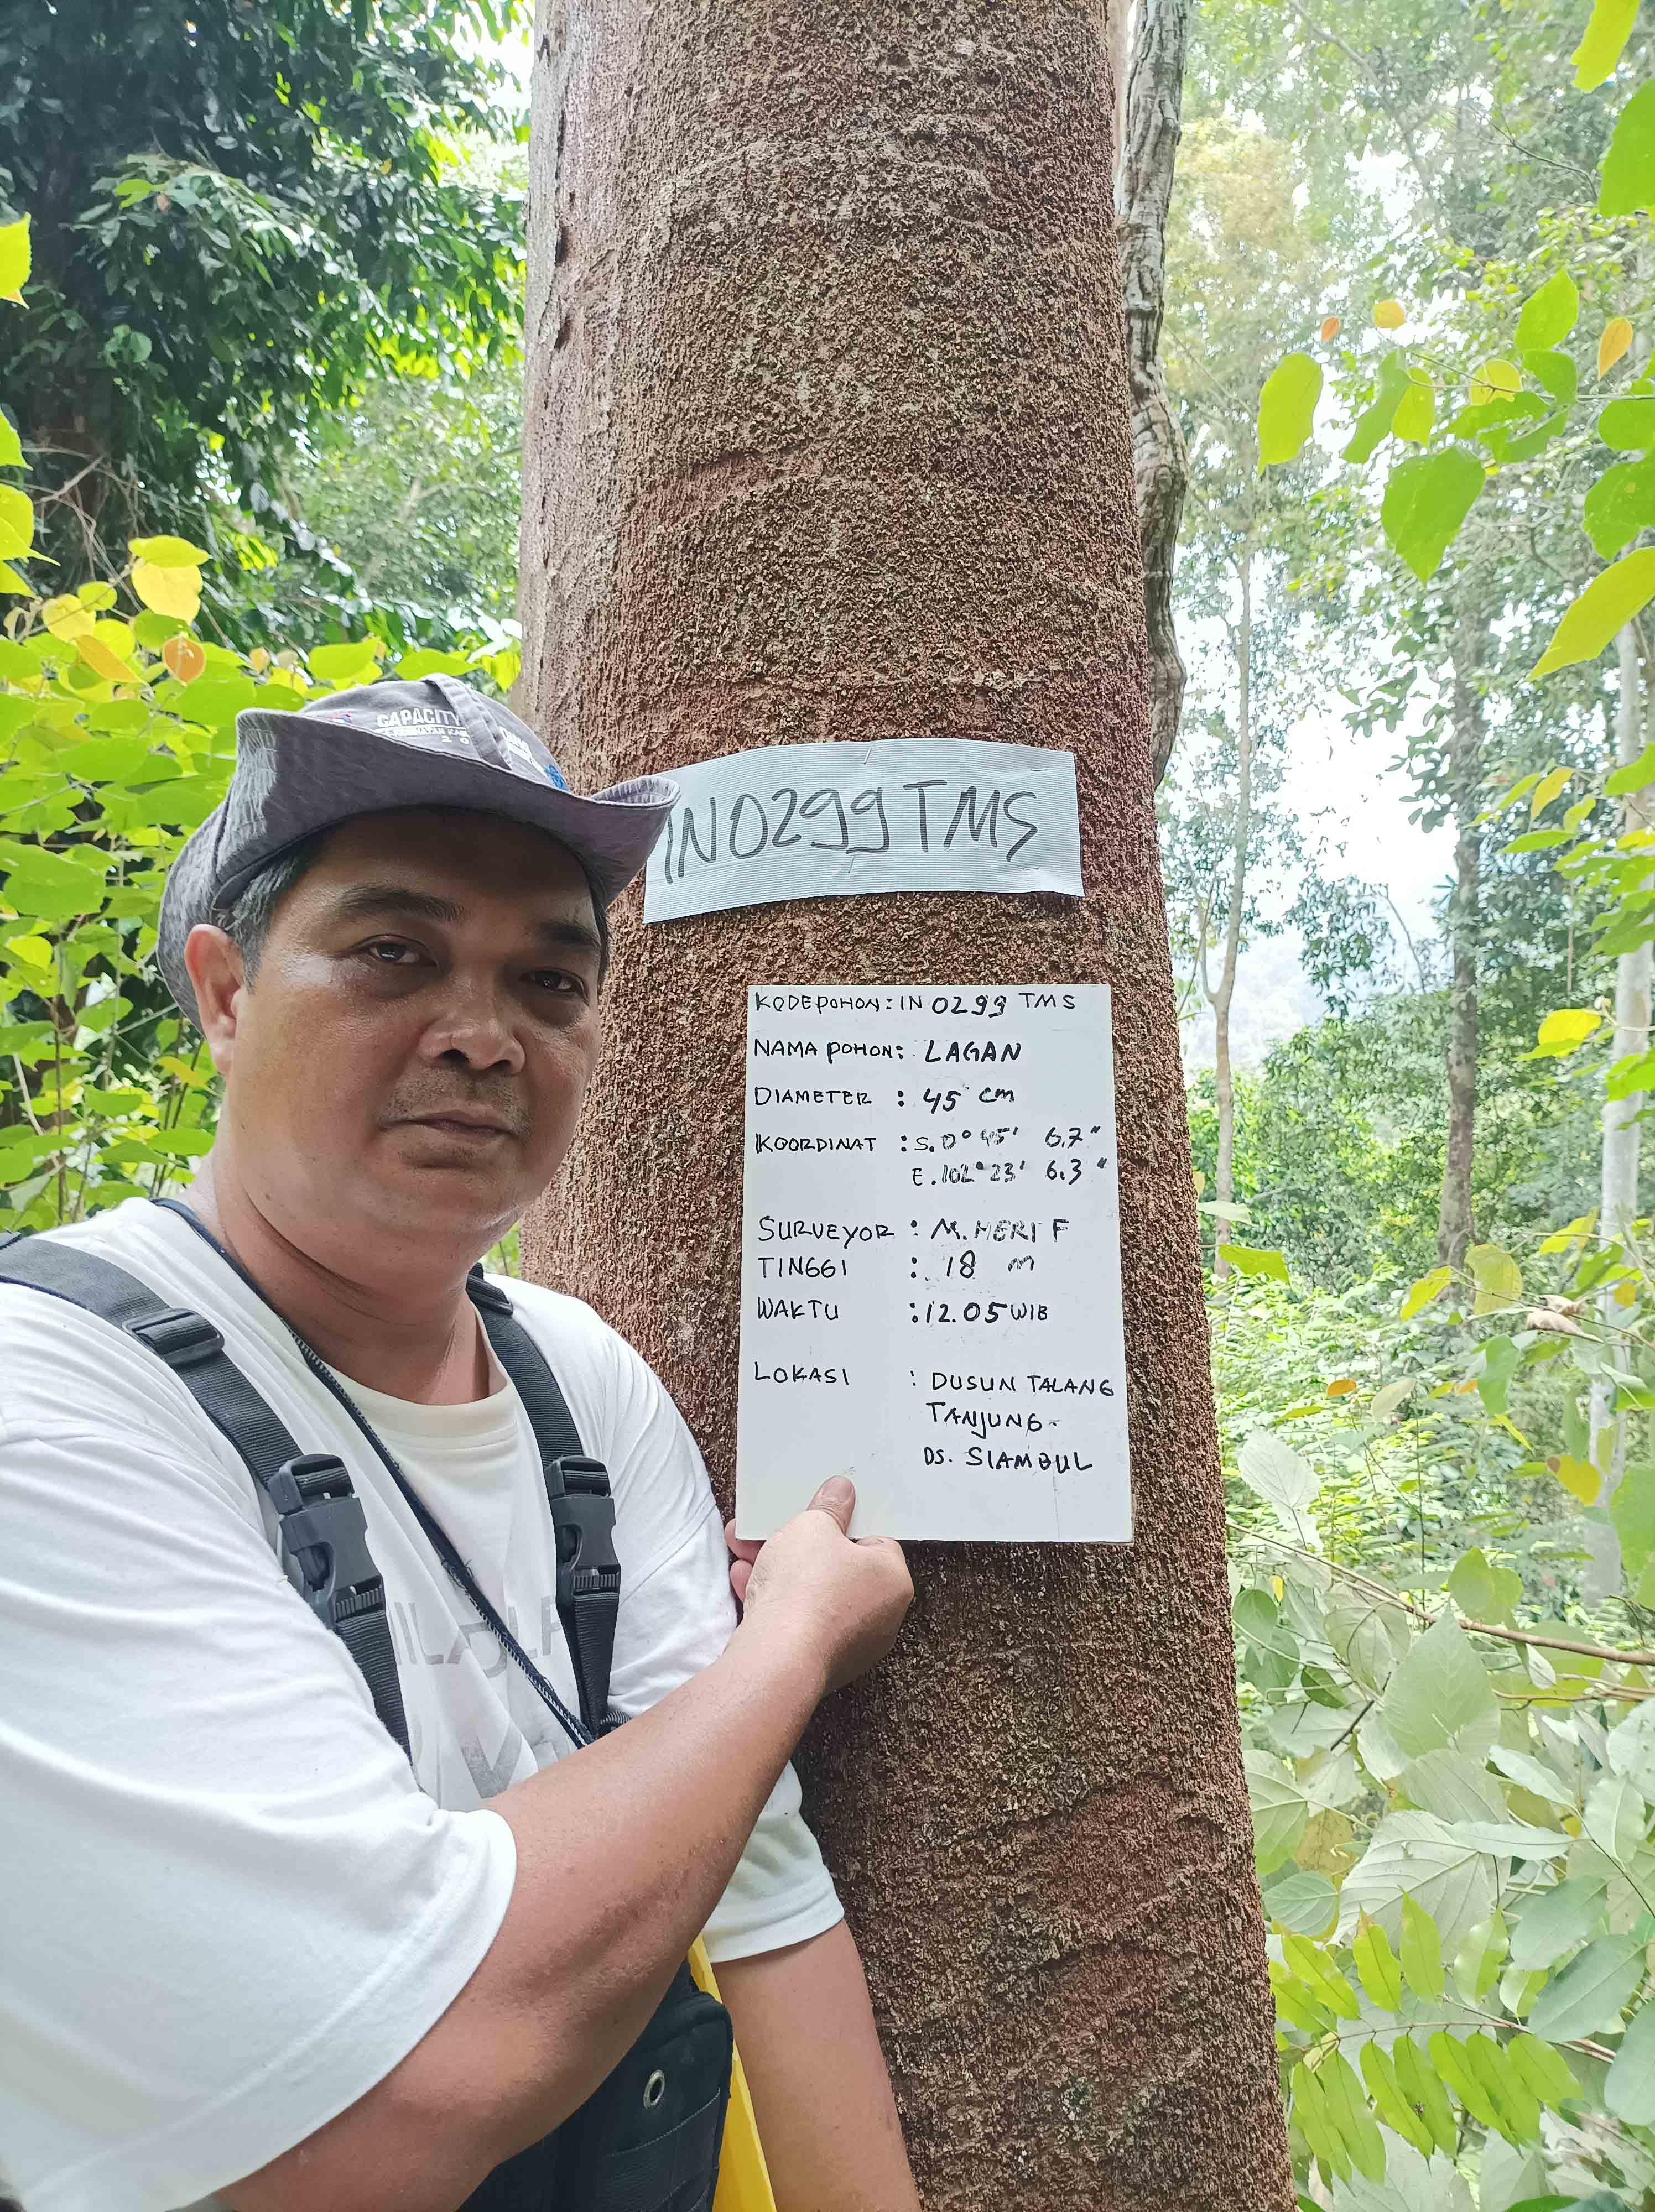 CAPACITY
IN0299TMS
KODE POHON : IN 0299 TMS
NAMA POHON : LAGAN
DIAMETER : 45 cm
KOORDINAT : S. 0° 45' 6.7"
E. 102° 23' 6.3"
SURVEYOR : M. HERI F
TINGGI : 18 m
WAKTU : 12.05 WIB
LOKASI : DUSUN TALANG
TANJUNG-
DS. SIAMBUL